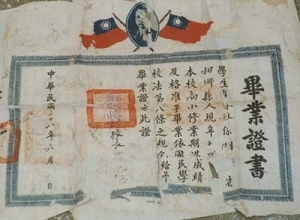 畢業證書
學生 係湖
縣人現年十
本校高小修業期滿成績
及格准予畢業依國民學
校法第八條之規定給予
畢業證書此證
校長
中華民國三十八年六月 日